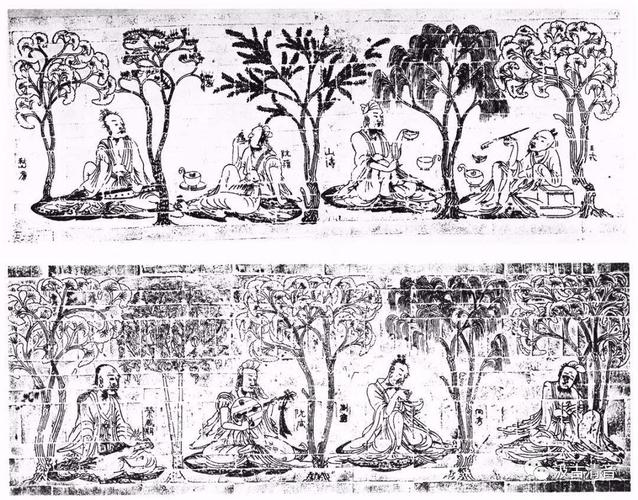 嵇康
阮籍
山濤
王戎
榮啓期
阮咸
劉靈
向秀